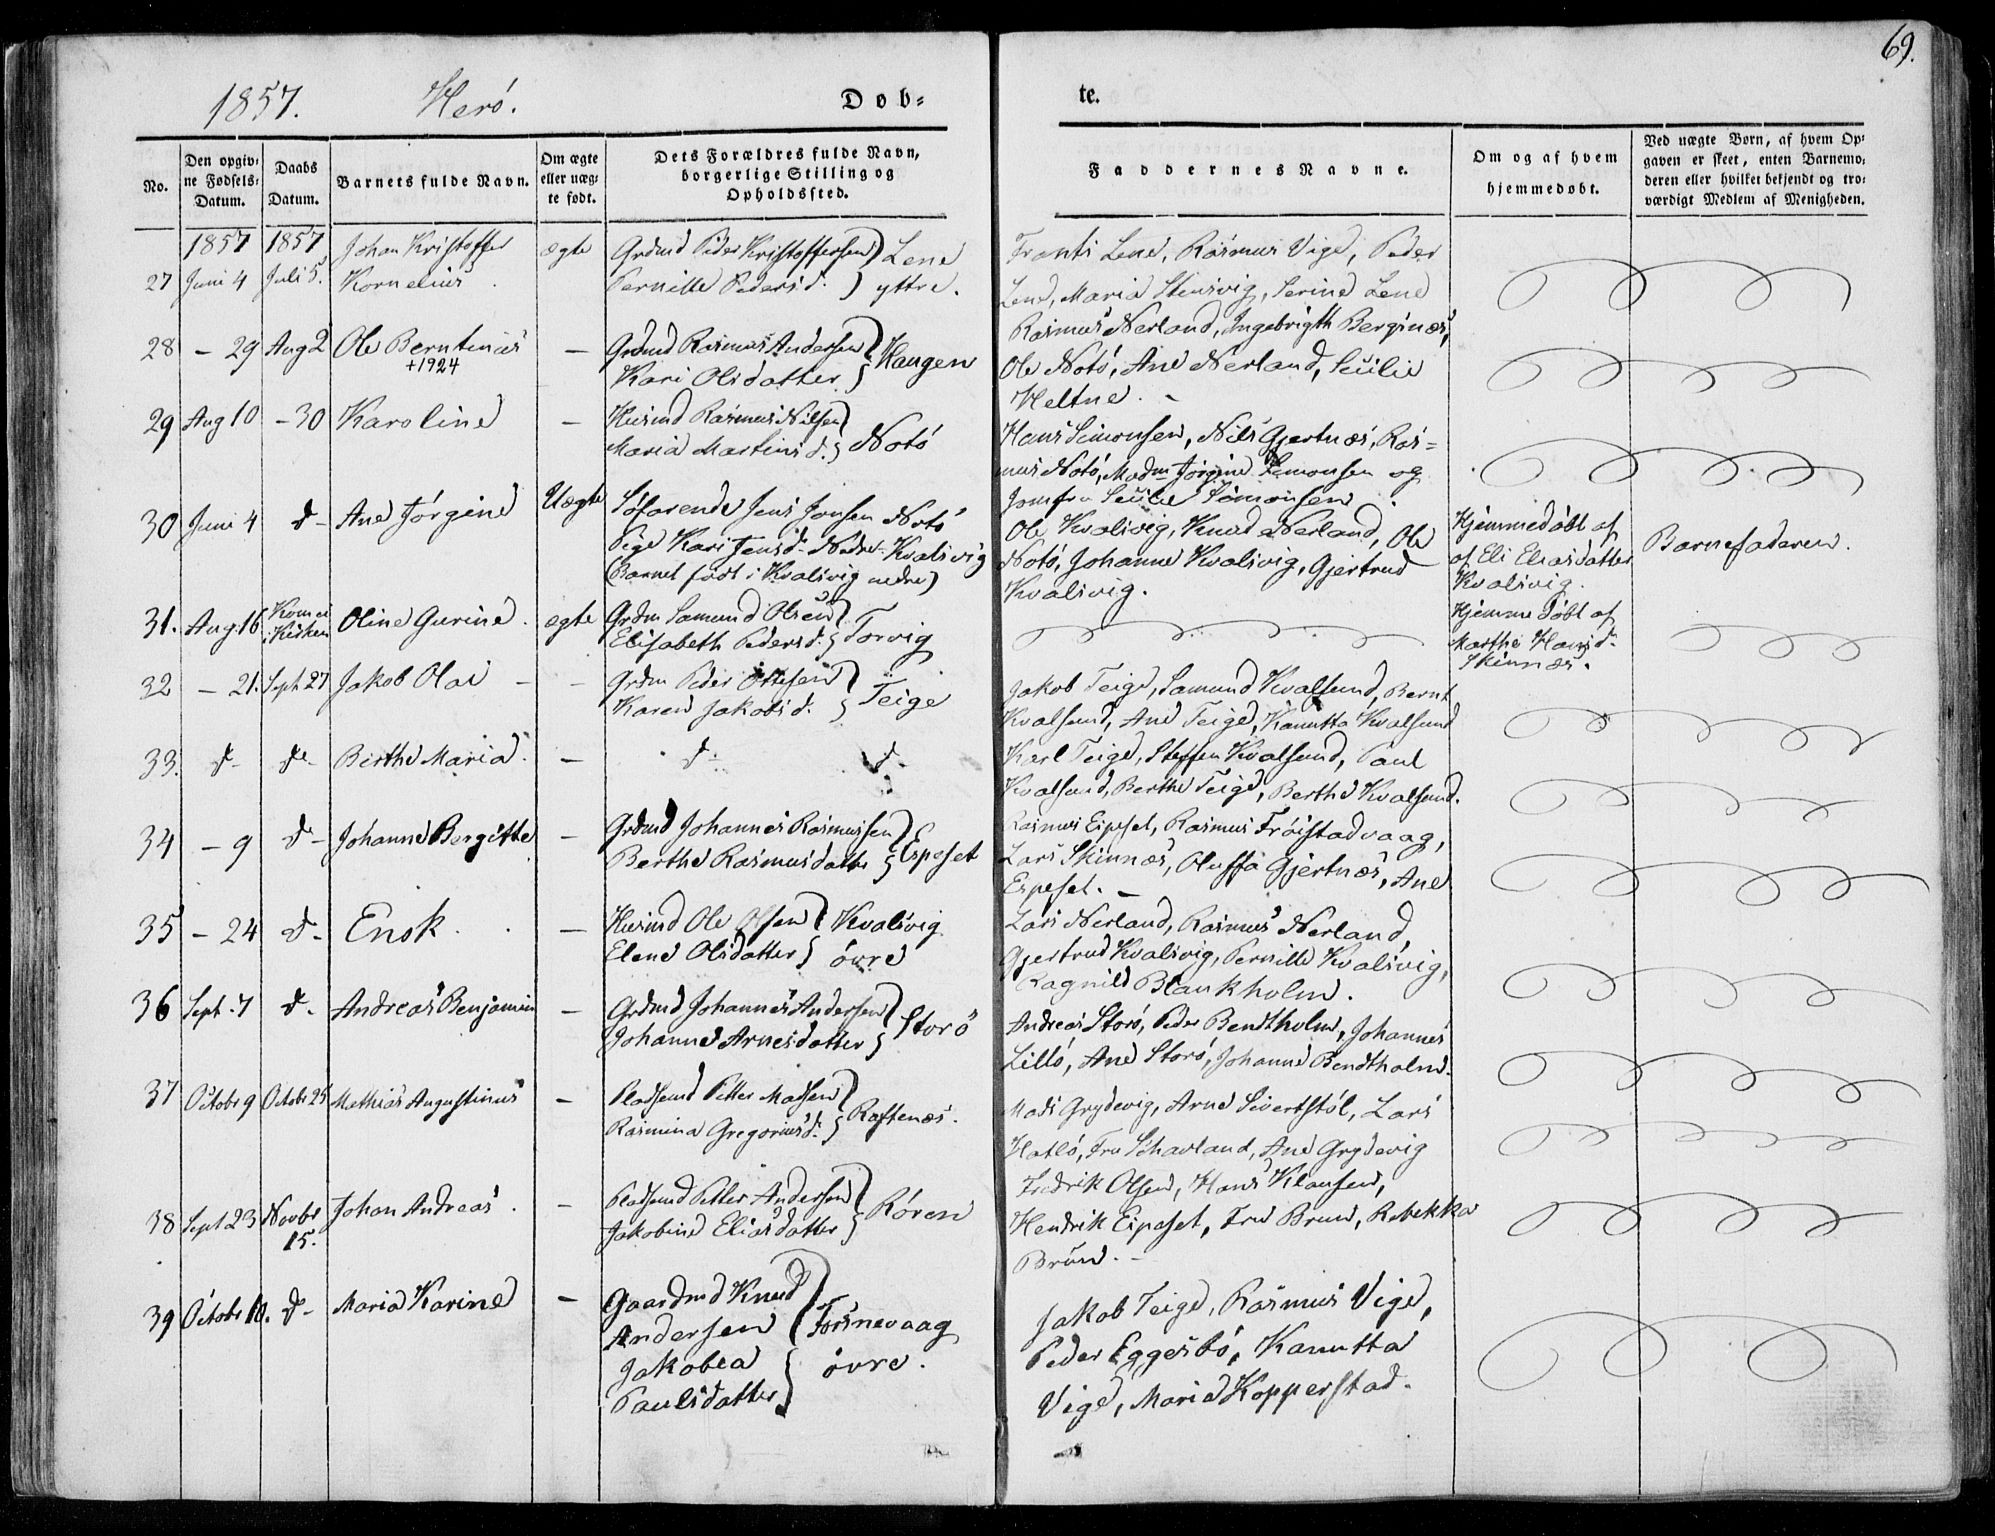 69.
1857. Herö. Döb= te.
No.
Den opgiv=
ne Fødsels=
Datum.
Daabs
Datum.
Barnets fulde Navn.
Om ægte
eller uæg=
te født.
Dets Forældres fulde Navn,
borgerlige Stilling og
Opholdssted.
Faddernes Navne.
Om og af hvem
hjemmedøbt.
Ved uægte Børn, af hvem Op=
gaven er skeet, enten Barnemo=
deren eller hvilket bekjendt og tro=
værdigt Medlem af Menigheden.
1857 1857 Johan Kristoffer ægte Grdmd Peder Kristoffersen } Lene
27 Juni 4 Juli 5. Kornelius. Pernille Pedersd. } yttre.
Frants Lene, Rasmus Vige, Peder
Lene, Maria Stensvig, Serine Lene
28 - 29 Aug 2 Ole Berntinus — Grdmd Rasmus Andersen } Haugen
+1924 Kari Olsdatter }
Rasmus Nerland, Ingebrigth Berginæs,
Ole Notö, Ane Nerland, Secilie
Heltne. -
29 Aug 10 - 30 Karoline — Husmd Rasmus Nilsen }
Maria Martinsd. } Notö
Hans Simonsen, Nils Gjertnæs, Ras=
mus Notö, Madm Jörgine Simonsen og
Jomfru Secilie Simonsen.
30 Juni 4 d- Ane Jörgine Uægte Söfarende Jens Jonsen Notö
Pige Kari Jensd- Nedre Kvalsvig
(Barnet födt i Kvalsvig nedre)
Ole Kvalsvig, Knud Nerland, Ole
Notö, Johanne Kvalsvig, Gjertrud
Kvalsvig.
Hjemmedöbt af
af Eli Eliasdatter
Kvalsvig.
Barnefaderen.
31. Aug. 16 Kom ei
i Kirken Oline Gurine. ægte Grdm Samund Olsen }
Elisabeth Pedersd. } Torvig
Hjemme döbt af
Marthe Hansd-
Skinnæs.
32 - 21. Sept 27 Jakob Olai - - Grdm Peder Ottesen }
Karen Jakobsd. } Teige
Jakob Teige, Samund Kvalsund, Bernt
Kvalsund, Ane Teige, Kanutta Kvalsund
33. d- d- Birthe Maria. — d- d-
Karl Teige, Steffen Kvalsund, Paul
Kvalsund, Berthe Teige, Berthe Kvalsund.
34 - 9 d- Johanne Bergitte — Grdmd Johannes Rasmussen }
Berthe Rasmusdatter } Espeset
Rasmus Eipset, Rasmus Fröistadvaag,
Lars Skinnæs, Oluffa Gjertnæs, Ane
Espeset. -
35 - 24 d- Enok. — Husmd Ole Olsen } Kvalsvig
Elene Olsdatter } övre
Lars Nerland, Rasmus Nerland,
Gjertrud Kvalsvig, Pernille Kvalsvig,
Ragnild Blankholm.
36 Sept. 7 d- Andreas Benjamin — Grdmd Johannes Andersen }
Johanne Arnesdatter } Storö
Andreas Storö, Peder Bendtholm, Johannes
Lillö, Ane Storö, Johanne Bendtholm.
37 Octobr 9 Octobr 25 Mathias Augustinus — Pladsmd Petter Madsen }
Rasmina Gregoriusd. } Raftenæs.
Mads Grydevig, Arne Sivertstöl, Lars
Hatlö, Fru Schavland, Ane Grydevig
38 Sept 23 Novbr
15. Johan Andreas. — Pladsmd Petter Andersen }
Jakobine Eliasdatter } Rören
Fredrik Olsen, Hans Klausen,
Hendrik Eipeset, Fru Brun, Rebekka
Brun. -
39 Octobr 10. d- Maria Karine — Gaardmd Knud
Andersen } Fosnevaag
Jakobea } övre.
Paulsdatter
Jakob Teige, Rasmus Vige,
Peder Eggesbö, Kanutta
Vige, Maria Kopperstad.